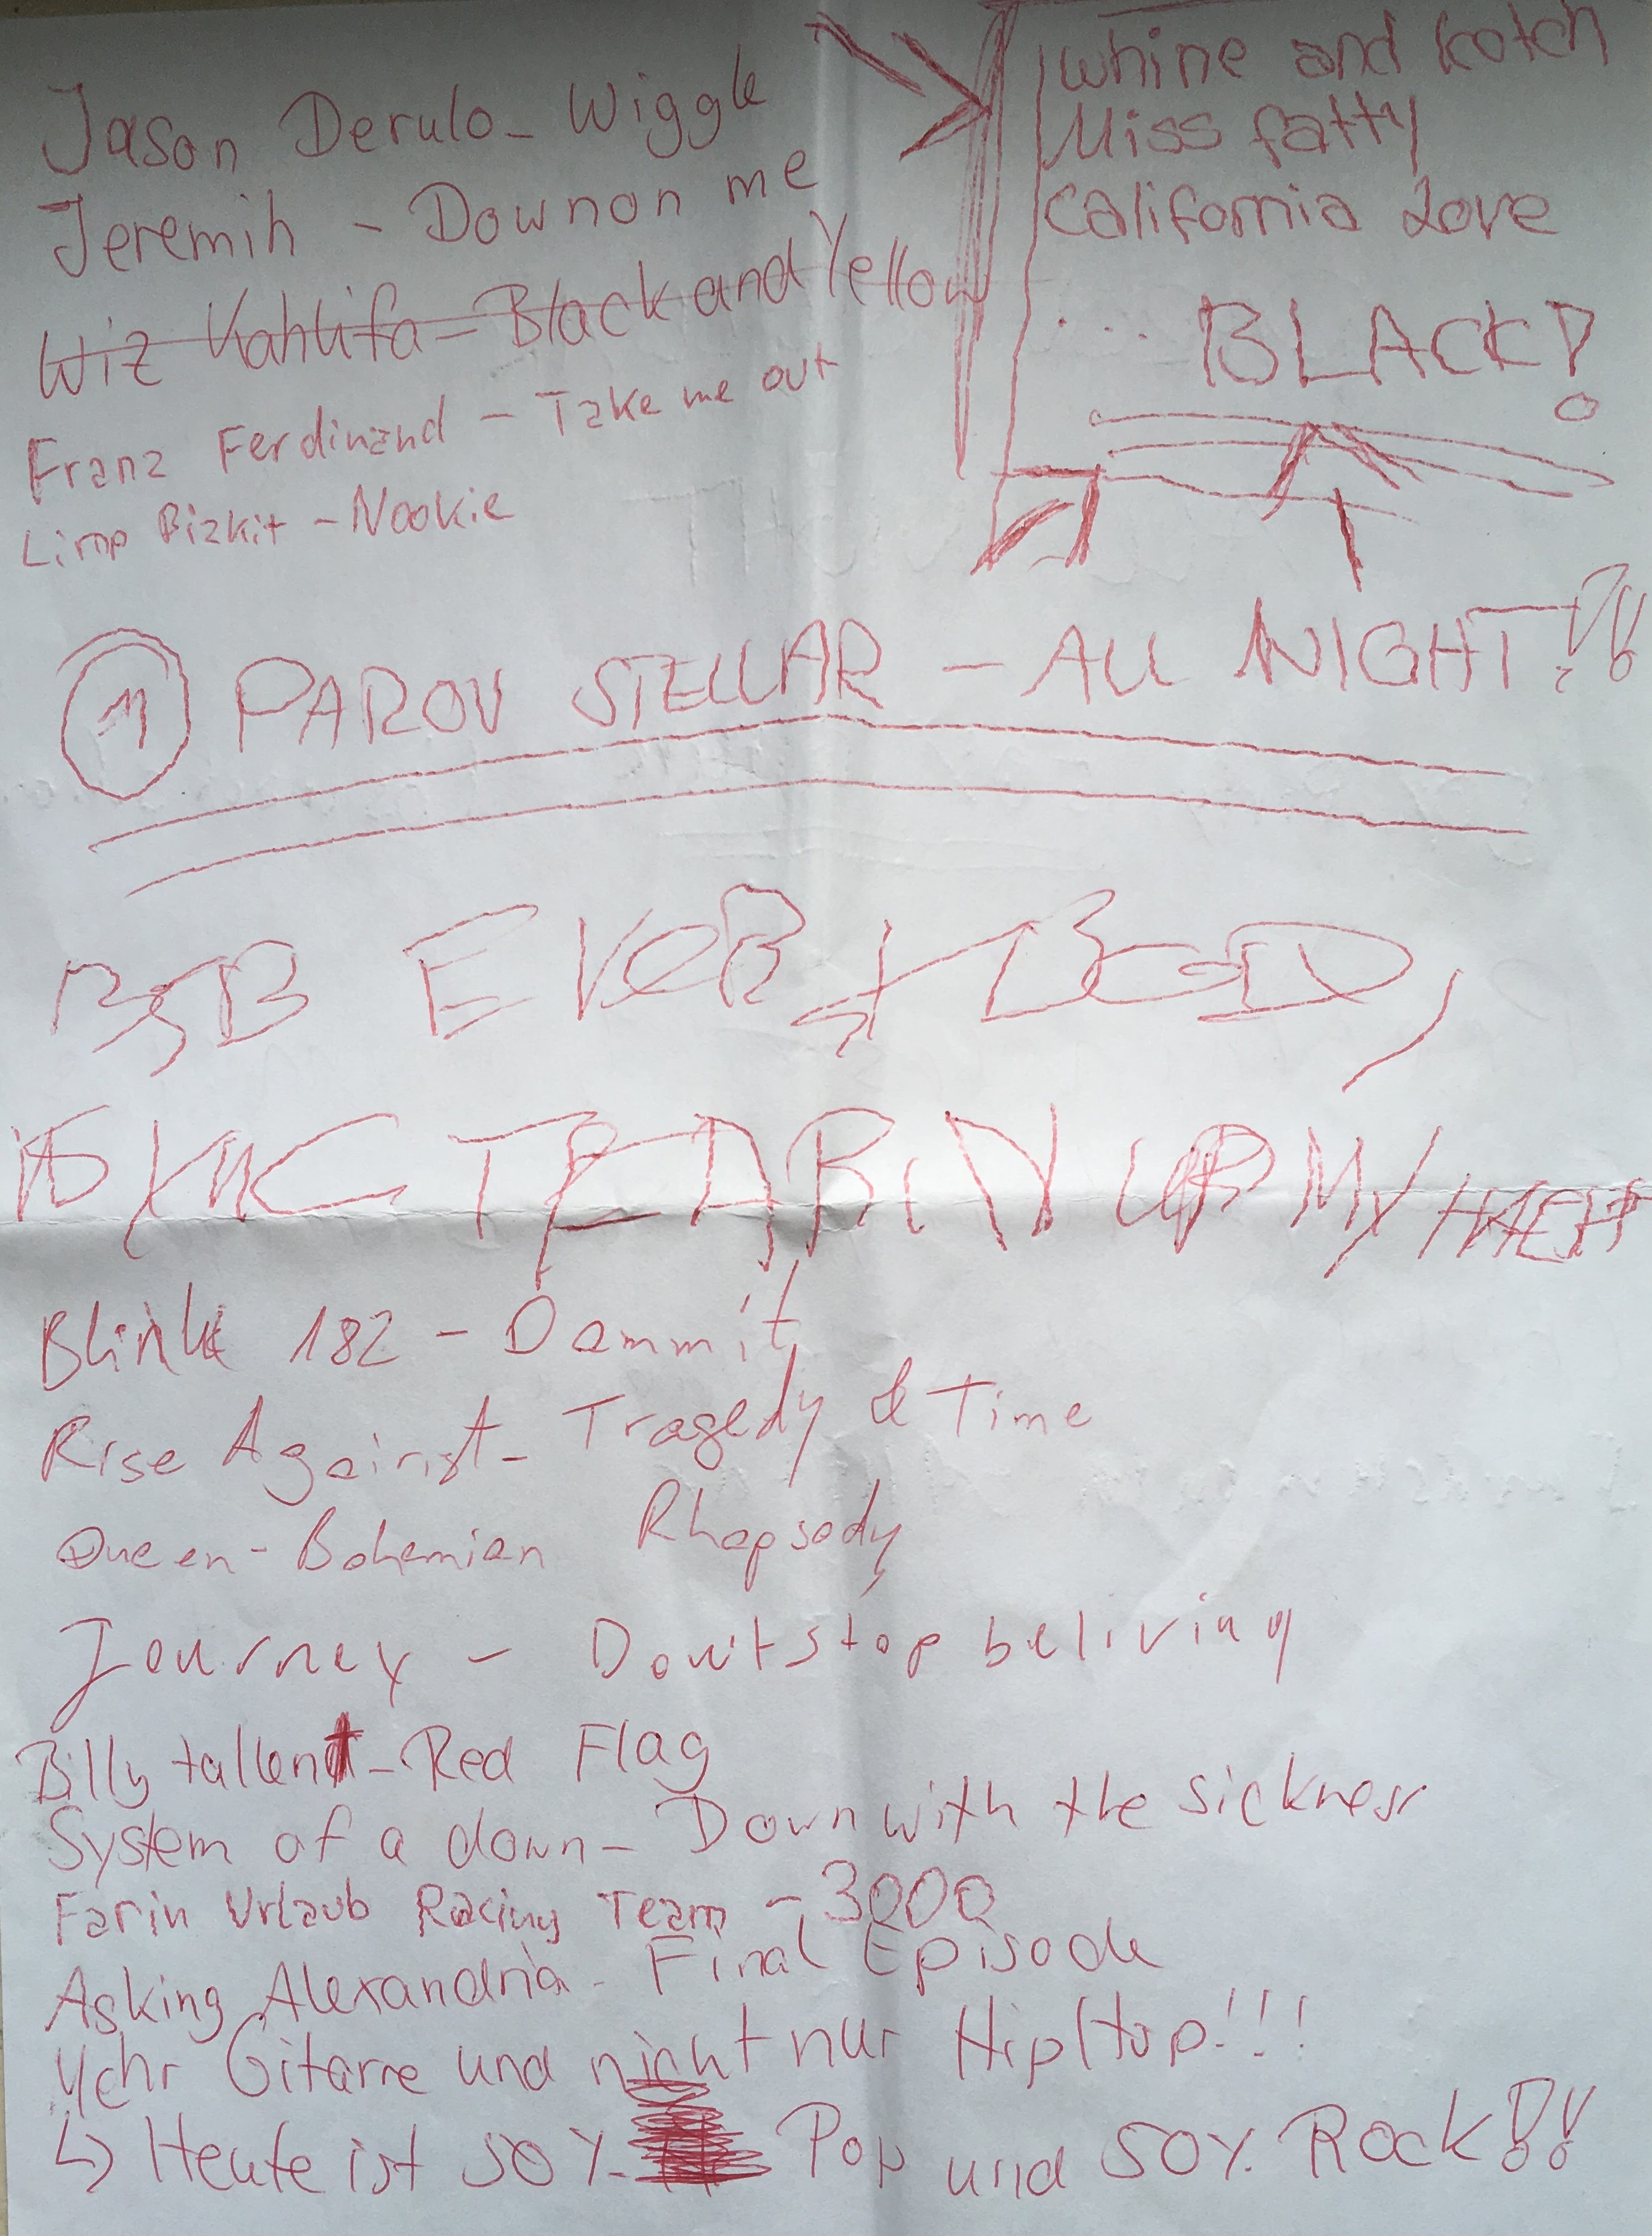 Jason Derulo - Wiggle
Jeremih - Down on me
Wiz Kahlifa - Black and Yellow
Franz Ferdinand - Take me out
Limp Bizkit - Nookie
whine and kotch
Miss fatty
California Love
... BLACK!
1 PAROV STELLAR - ALL NIGHT!!!
BSB EVERYBODY
TEARIN UP MY
Blink 182 - Dammit
Rise Against - Tragedy & Time
Queen - Bohemian Rhapsody
Journey - Don't stop beliving
Billy tallent - Red Flag
System of a down - Down with the sickness
Farin Urlaub Racing Team - 3000
Asking Alexandria - Final Episode
Mehr Gitarre und nicht nur HipHop!!!
↳ Heute ist 50% Pop und 50% Rock!!!